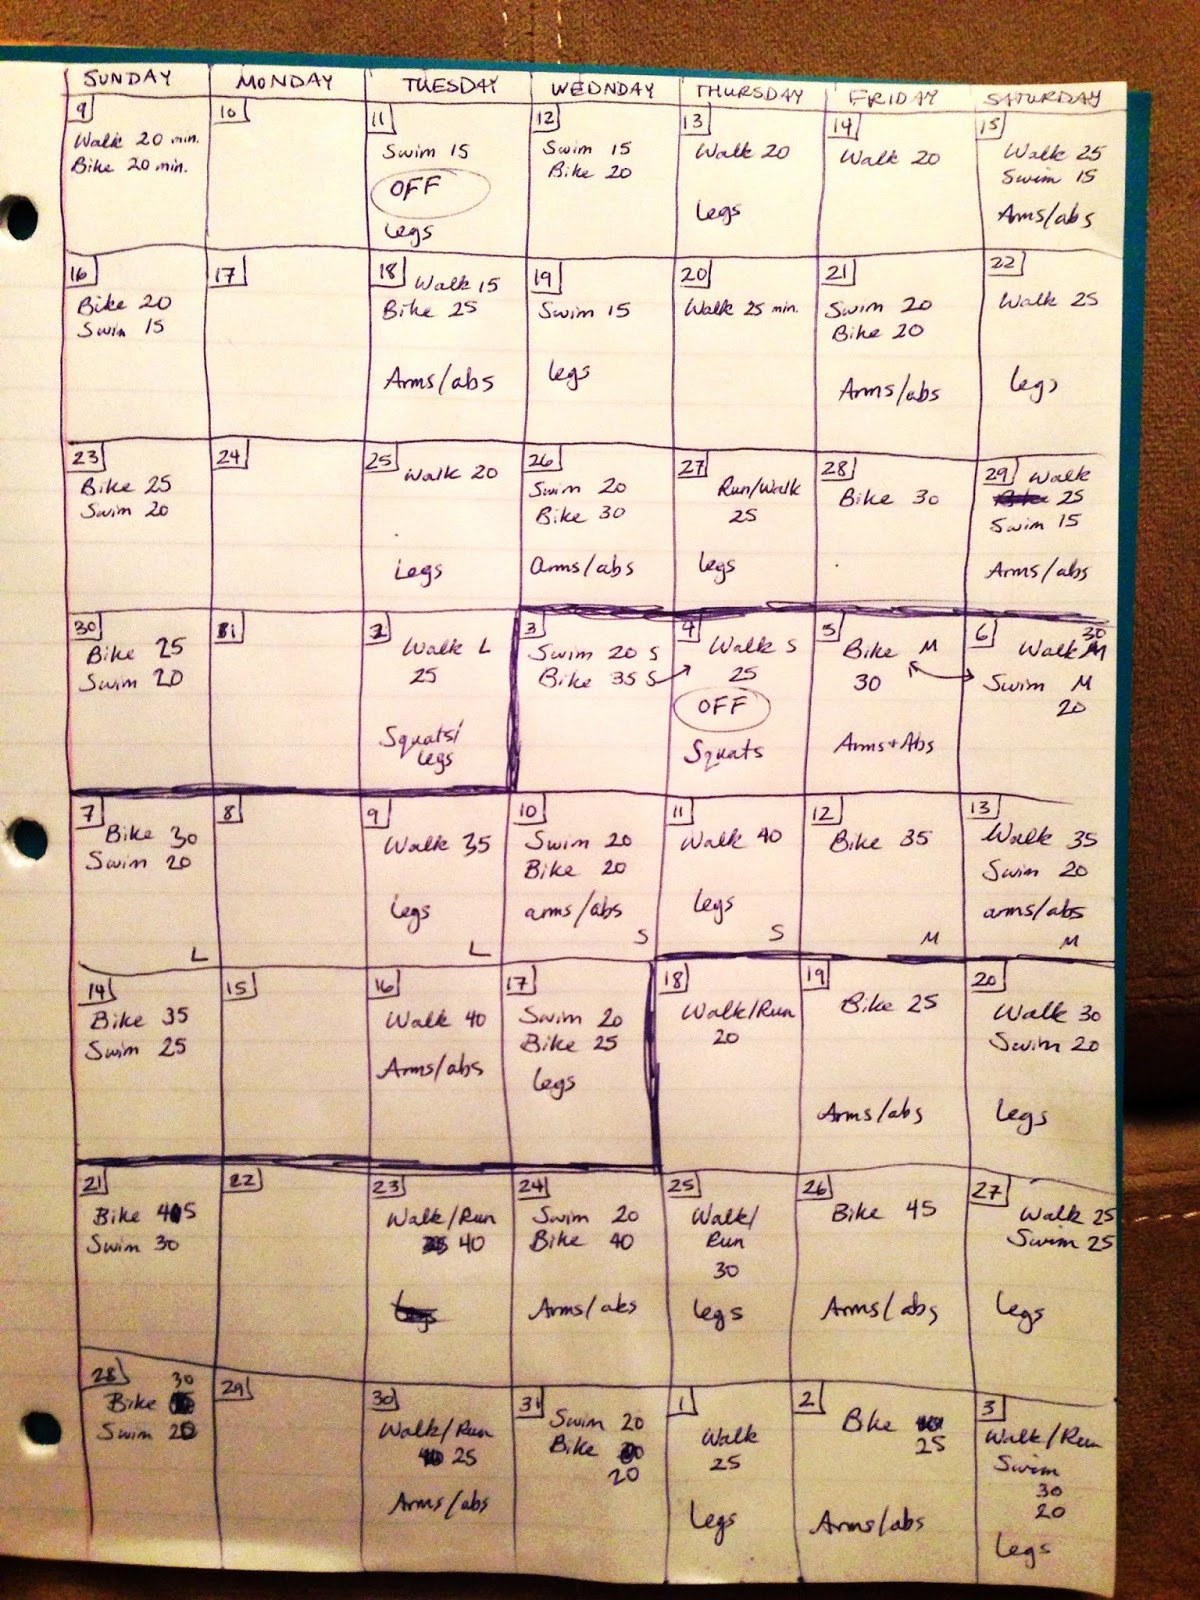 SUNDAY MONDAY TUESDAY WEDNDAY THURSDAY FRIDAY SATURDAY
9
Walk 20 min.
Bike 20 min.
10
11
Swim 15
OFF
Legs
12
Swim 15
Bike 20
13
Walk 20
Legs
14
Walk 20
15
Walk 25
Swim 15
Arms/abs
16
Bike 20
Swim 15
17
18 Walk 15
Bike 25
Arms/abs
19
Swim 15
legs
20
Walk 25 min.
21
Swim 20
Bike 20
Arms/abs
22
Walk 25
legs
23
Bike 25
Swim 20
24
25
Walk 20
Legs
26
Swim 20
Bike 30
Arms/abs
27
Run/Walk
25
legs
28
Bike 30
29 Walk
25
Swim 15
Arms/abs
30
Bike 25
Swim 20
31
2
Walk L
25
Squats/
legs
3
Swim 20 S
Bike 35 S
4
Walk S
25
OFF
Squats
5
Bike M
30
Arms+Abs
6
30
Walk M
Swim M
20
7
Bike 30
Swim 20
L
8
9
Walk 35
Legs
L
10
Swim 20
Bike 20
arms/abs
S
11
Walk 40
legs
S
12
Bike 35
M
13
Walk 35
Swim 20
arms/abs
M
14
Bike 35
Swim 25
15
16
Walk 40
Arms/abs
17
Swim 20
Bike 25
legs
18
Walk/Run
20
19
Bike 25
Arms/abs
20
Walk 30
Swim 20
Legs
21
Bike 45
Swim 30
22
23
Walk/Run
40
24
Swim 20
Bike 40
Arms/abs
25
Walk/
Run
30
legs
26
Bike 45
Arms/abs
27
Walk 25
Swim 25
Legs
28
30
Bike
Swim 20
29
30
Walk/Run
25
Arms/abs
31
Swim 20
Bike
20
1
Walk
25
Legs
2
Bike
25
Arms/abs
3
Walk/Run
Swim
30
20
Legs